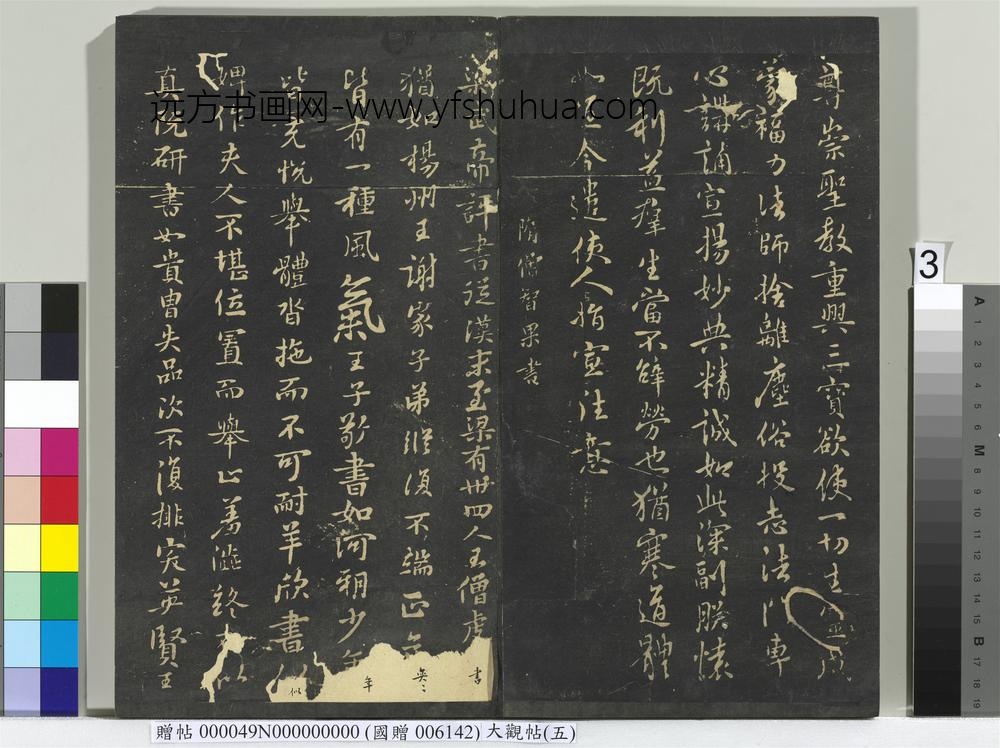 尊崇聖教重興三寶欲使一切生靈咸
蒙福力法師捨離塵俗投志法門專
心講誦宣揚妙典精誠如此深副朕懷
既利益群生當不辭勞也猶寒道體
如宜今遣使人指宣往意
隋僧智果書
梁武帝評書從漢末至梁有卅四人王僧虔書
猶如楊州王謝家子弟縱復不端正奕奕
皆有一種風氣王子敬書如河朔少年
皆充悅舉體沓拖而不可耐羊欣書似
婢作夫人不堪位置而舉止羞澀終不似
真阮研書如貴胄失品次不復排突英賢王
書
奕〻
年
似
远方书画网-www.yfshuhua.com
3
A
1
2
3
4
5
6
M
8
9
10
11
12
13
14
15
B
17
18
19
贈帖 000049N000000000 (國贈 006142) 大觀帖(五)